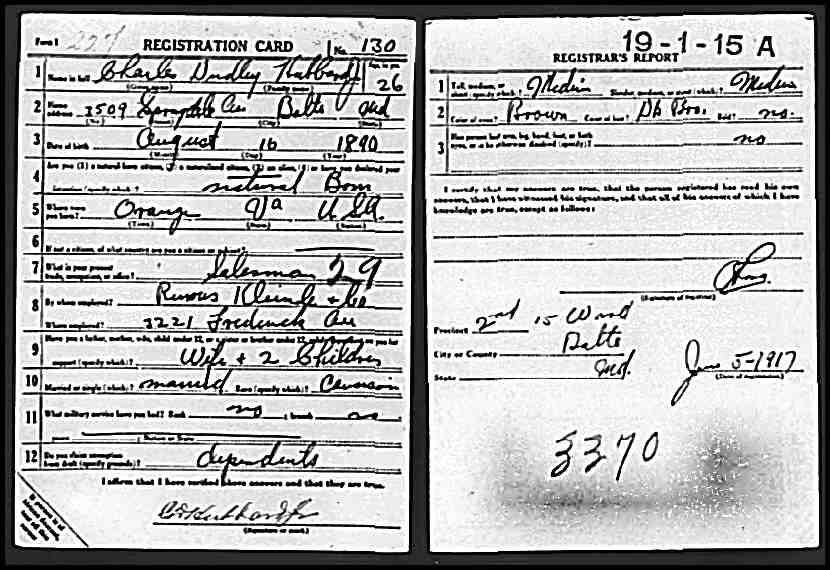 Form 1 227 REGISTRATION CARD No. 130
1 Name in full Charles Dudley Hubbard Jr Age, in yrs. 26
(Given name) (Family name)
2 Home address 3509 Springdale Av Balto Md
(No.) (City) (State)
3 Date of birth August 16 1890
(Month) (Day) (Year)
4 Are you (1) a natural-born citizen, (2) a naturalized citizen, (3) an alien, (4) or have you declared your
intention (specify which)? natural Born
5 Where were you born? Orange Va USA.
(Town) (State) (Nation)
6 If not a citizen, of what country are you a citizen or subject?
7 What is your present trade, occupation, or office? Salesman 29
8 By whom employed? Kleinle & Co
Where employed? 3221 Frederick Av
9 Have you a father, mother, wife, child under 12, or a sister or brother under 12, solely dependent on you for
support (specify which)? Wife & 2 Children
10 Married or single (which)? married Race (specify which)? Caucasian
11 What military service have you had? Rank no ; branch no
years ; Nation or State
12 Do you claim exemption from draft (specify grounds)? dependents
I affirm that I have verified above answers and that they are true.
C D Hubbard Jr
(Signature or mark)
19-1-15 A
REGISTRAR'S REPORT
1 Tall, medium, or short (specify which)? Medium Slender, medium, or stout (which)? Medium
2 Color of eyes? Brown Color of hair? Dk Bro. Bald? no.
3 Has person lost arm, leg, hand, foot, or both eyes, or is he otherwise disabled (specify)? no
I certify that my answers are true, that the person registered has read his own
answers, that I have witnessed his signature, and that all of his answers of which I have
knowledge are true, except as follows:
(Signature of registrar)
Precinct 2nd 15 Ward
City or County Balto
State Md. June 5-1917
(Date of registration)
3370